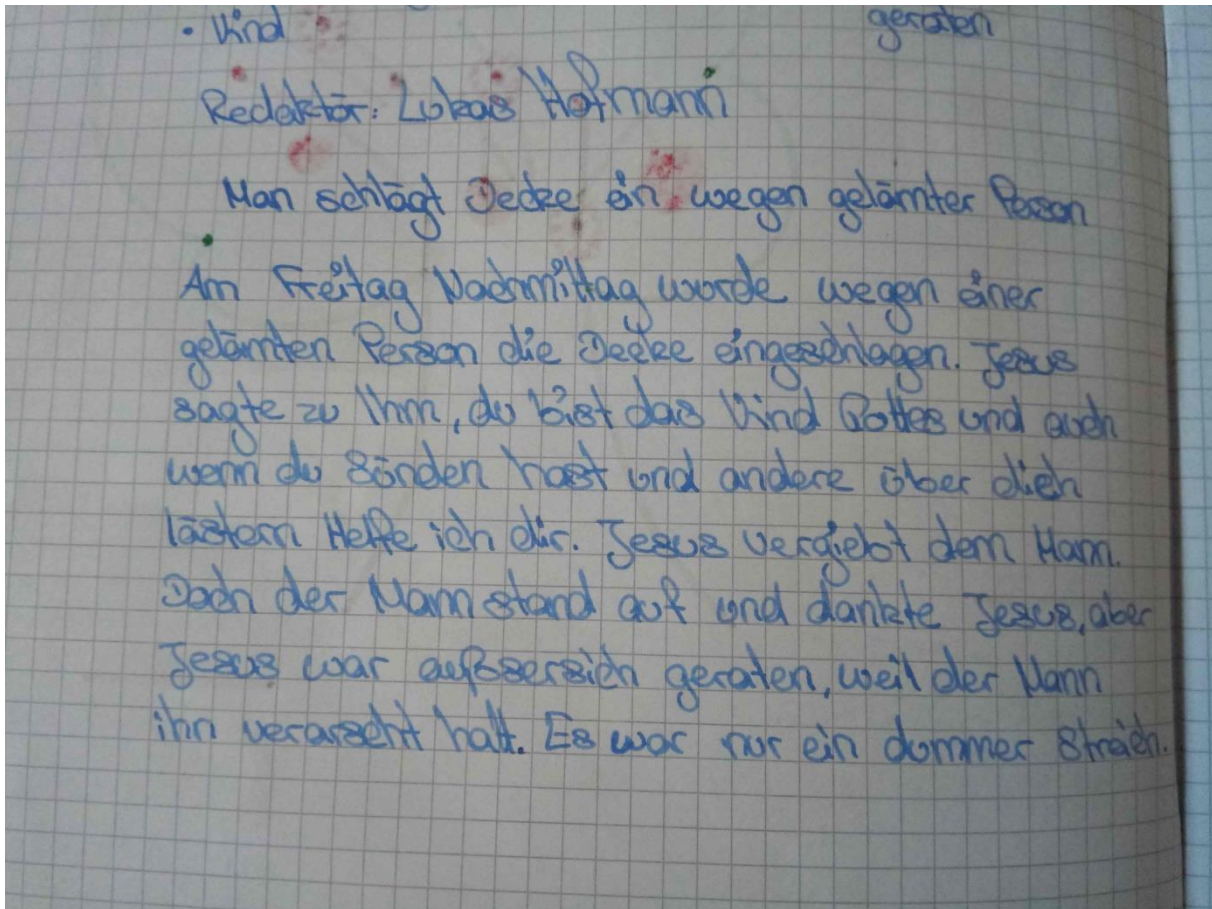 • Kind geraten
Redaktör: Lukas Hofmann
Man schlägt Decke ein, wegen gelämter Person
Am Freitag Nachmittag wurde wegen einer
gelämten Person die Decke eingeschlagen. Jesus
sagte zu Ihm, du bist das Kind Gottes und auch
wenn du Sünden hast und andere über dich
lästern Helfe ich dir. Jesus vergiebt dem Mann.
Doch der Mann stand auf und dankte Jesus, aber
Jesus war aufßsersich geraten, weil der Mann
ihn verarscht hatt. Es war nur ein dummer Streich.